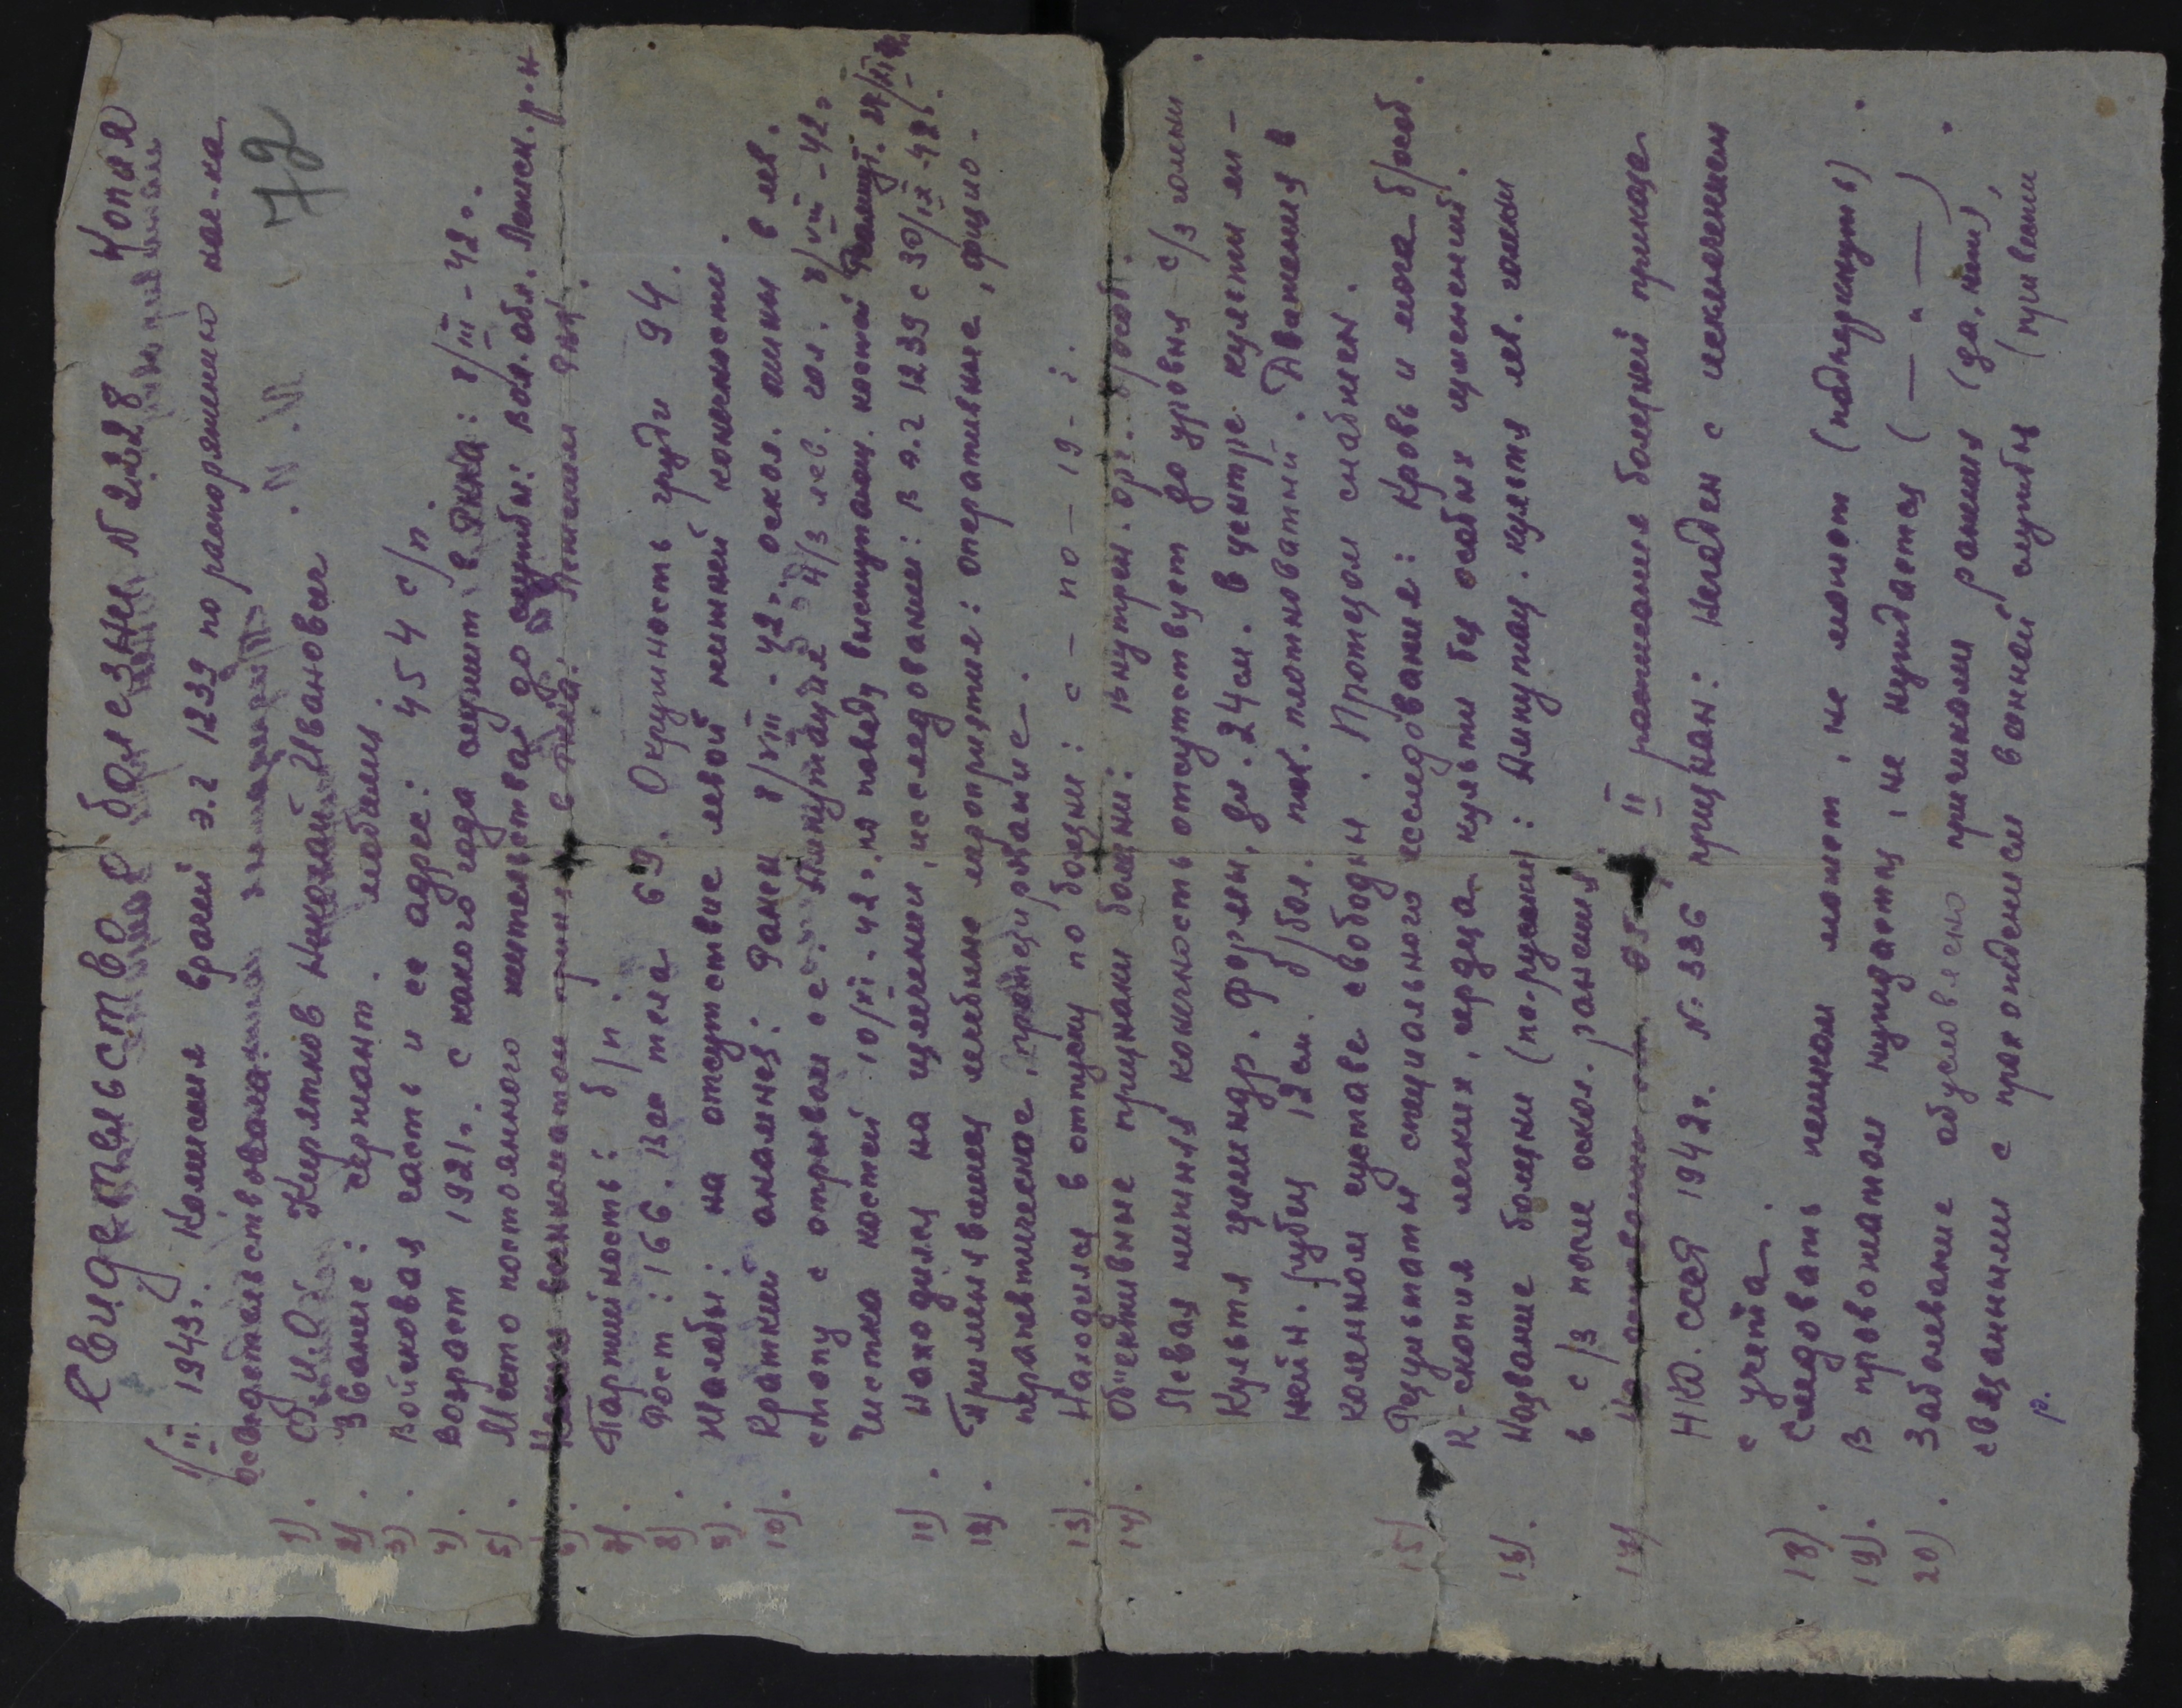 Копия
Свидетельство болезни N 2228
1/II 1943г. Комиссия врачей э.г 1239 по распоряжению нач-ка
освидетельствовала
72
1). Ф.И.О. Николай Иванович
2). Звание: сержант.
3). Войсковая часть и ее адрес: 454 с/п.
4). Возраст 1921г. с какого года служит в РККА: 8/III-42г.
5). Место постоянного жительства до службы: Вол. обл. Ленск. р-н
6). Каким военкоматом призван в РККА: Ленским РВК.
7). Партийность: б/п.
8). Рост: 166. Вес тела 69. Окружность груди 94.
9). Жалобы: на отсутствие левой нижней конечности.
10). Краткий анамнез: Ранен 8/VIII-42г. оскол. мины в лев.
стопу с отрывом ее. Ампутация н/3 лев. гол: 8/VIII-42г.
Чистка костей 10/XI-42г. по поводу выступающ. костей
11). Находился на излечении, исследовании: в э.г 1239 с 30/IX-42г.
12). Применявшиеся лечебные мероприятия: оперативные, физио-
терапевтическое, протезирование.
13). Находился в отпуску по болезни: с - по - 19-:
14). Объективные признаки болезни: внутрен. орг. б/особ.
Левая нижняя конечность отсутствует до уровня с/3 голени
Культя цилиндр. формы, дл. 24 см. в центре культи ли-
нейн. рубец 12 см. б/бол. плотноватый. Движения в
коленном суставе свободны. Протезом снабжен.
15). Результаты специального исследования: Кровь и моча б/особ.
R-скопия легких, сердца культи без особых изменений.
16). Название болезни (по-русски): Ампутац. культя лев. голени
в с/3 после оскол. ранения
17). На основании ст. II расписания болезней приказа
НКО. СССР 1942г. N: 336 признан: Негоден с исключением
с учета.
18). Следовать пешком может, не может (подчеркнуть)
19). В провожатом нуждается, не нуждается ( — " — )
20). Заболевание обусловлено причинами ранения (да, нет),
связанными с прохождением военной службы (привести
р.